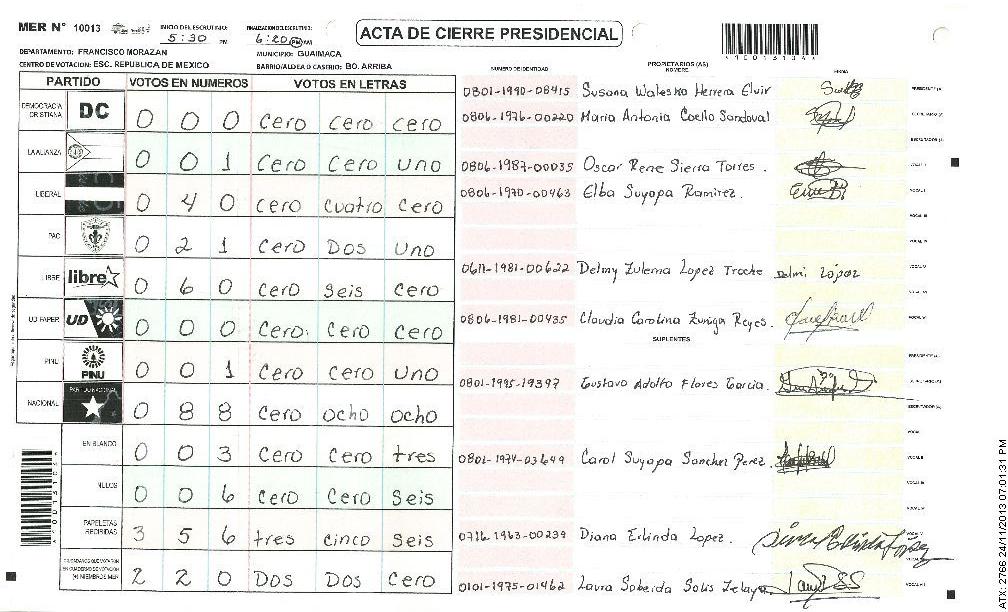 MER N° 10013 INICIO DEL ESCRUTINIO: 5:30 PM FINALIZACION DEL ESCRUTINIO: 6:20 PM AM ACTA DE CIERRE PRESIDENCIAL
DEPARTAMENTO: FRANCISCO MORAZAN MUNICIPIO: GUAIMACA
CENTRO DE VOTACION: ESC. REPUBLICA DE MEXICO BARRIO/ALDEA O CASTRIO: BO. ARRIBA
PARTIDO VOTOS EN NUMEROS VOTOS EN LETRAS
DEMOCRACIA CRISTIANA DC 0 0 0 cero cero cero
LA ALIANZA 0 0 1 cero cero uno
LIBERAL 0 40 cero cuatro cero
PAC 0 2 1 cero DOS uno
LIBRE libre 0 6 0 cero seis cero
UD FAPER UD 0 0 0 cero cero cero
PINU PINU 0 0 1 cero cero uno
NACIONAL PARTIDO NACIONAL 0 8 8 cero ocho ocho
EN BLANCO 0 0 3 cero cero tres
NULOS 0 0 6 cero cero seis
PAPELETAS RECIBIDAS 3 5 6 tres cinco seis
2 2 0 DOS DOS cero
NUMERO DE IDENTIDAD PROPIETARIOS (AS) NOMBRE FIRMA
0801-1990-08415 Susana Waleska Herrera Elvir PRESIDENTE (A)
0806-1976-00220 Maria Antonia Coello Sandoval SECRETARIO (A)
ESCRUTADOR (A)
0806-1987-00035 Oscar Rene Sierra Torres. VOCAL I
0806-1970-00463 Elba Suyapa Ramirez.
VOCAL III
VOCAL IV
0611-1981-00622 Delmy Zulema Lopez Troche Delmi López VOCAL V
0806-1981-00435 Claudia Carolina Zuniga Reyes.
SUPLENTES
PRESIDENTE (A)
0801-1995-19397 Gustavo Adolfo Flores Garcia. SECRETARIO (A)
ESCRUTADOR (A)
VOCAL I
0801-1974-03649 Carol Suyapa Sanchez Perez. VOCAL II
VOCAL III
0716-1963-00239 Diana Erlinda Lopez.
0101-1975-01462 Laura Sobeida Solis Zelaya
ATX-2766 24/11/2013 07:01:31 PM